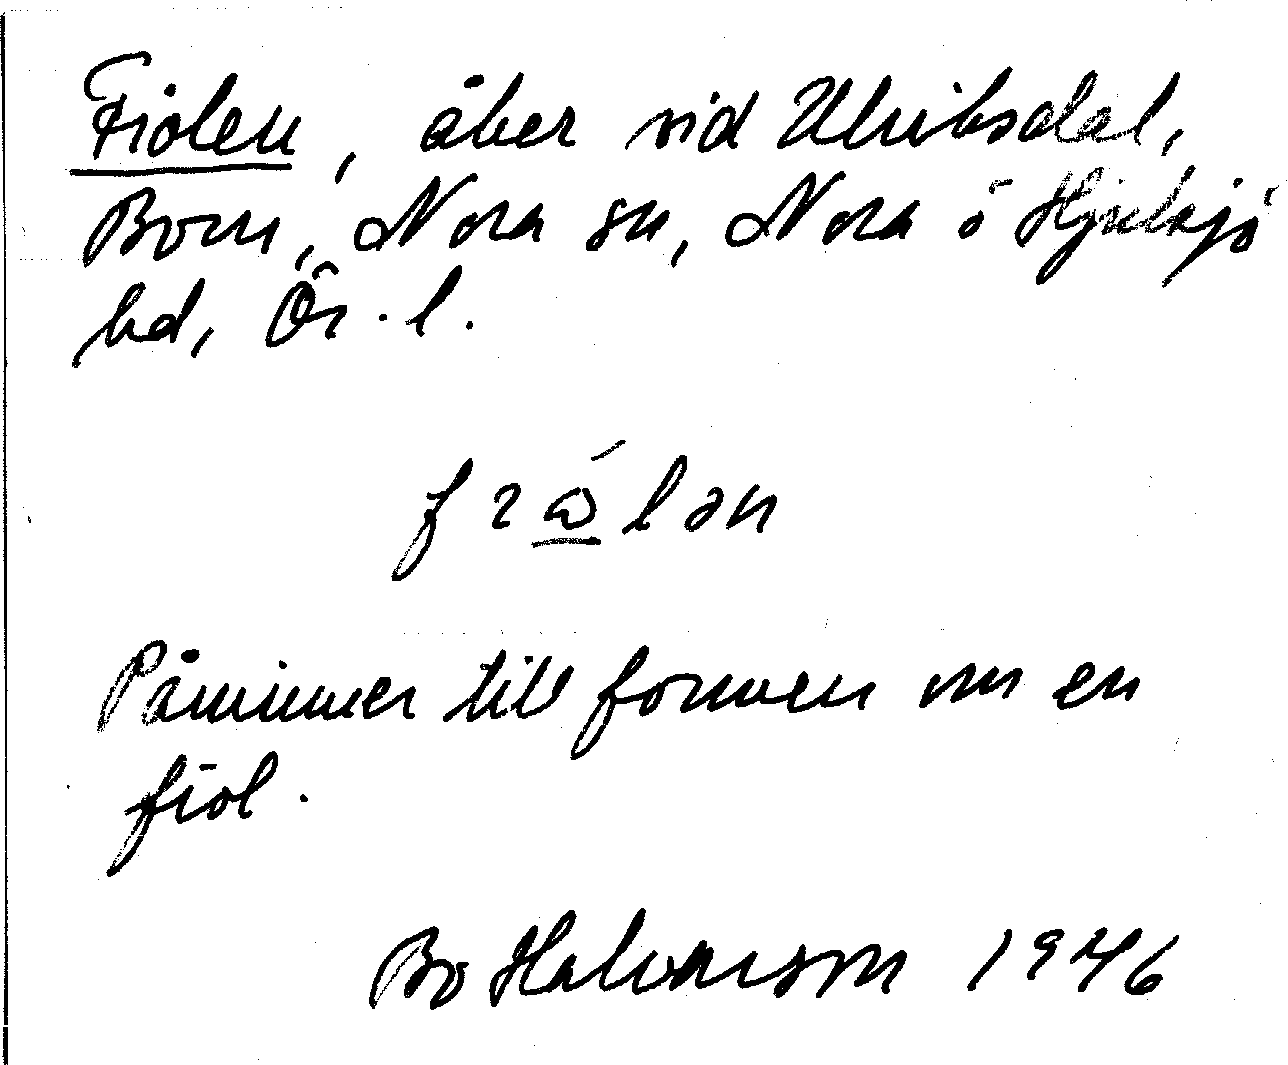 Fiolen, åker vid Ulriksdal,
Born, Nora sn, Nora o Hjulsjö
bd, Ör. l.
Påminner till formen om en
fiol.
Bo Halvarson 1946